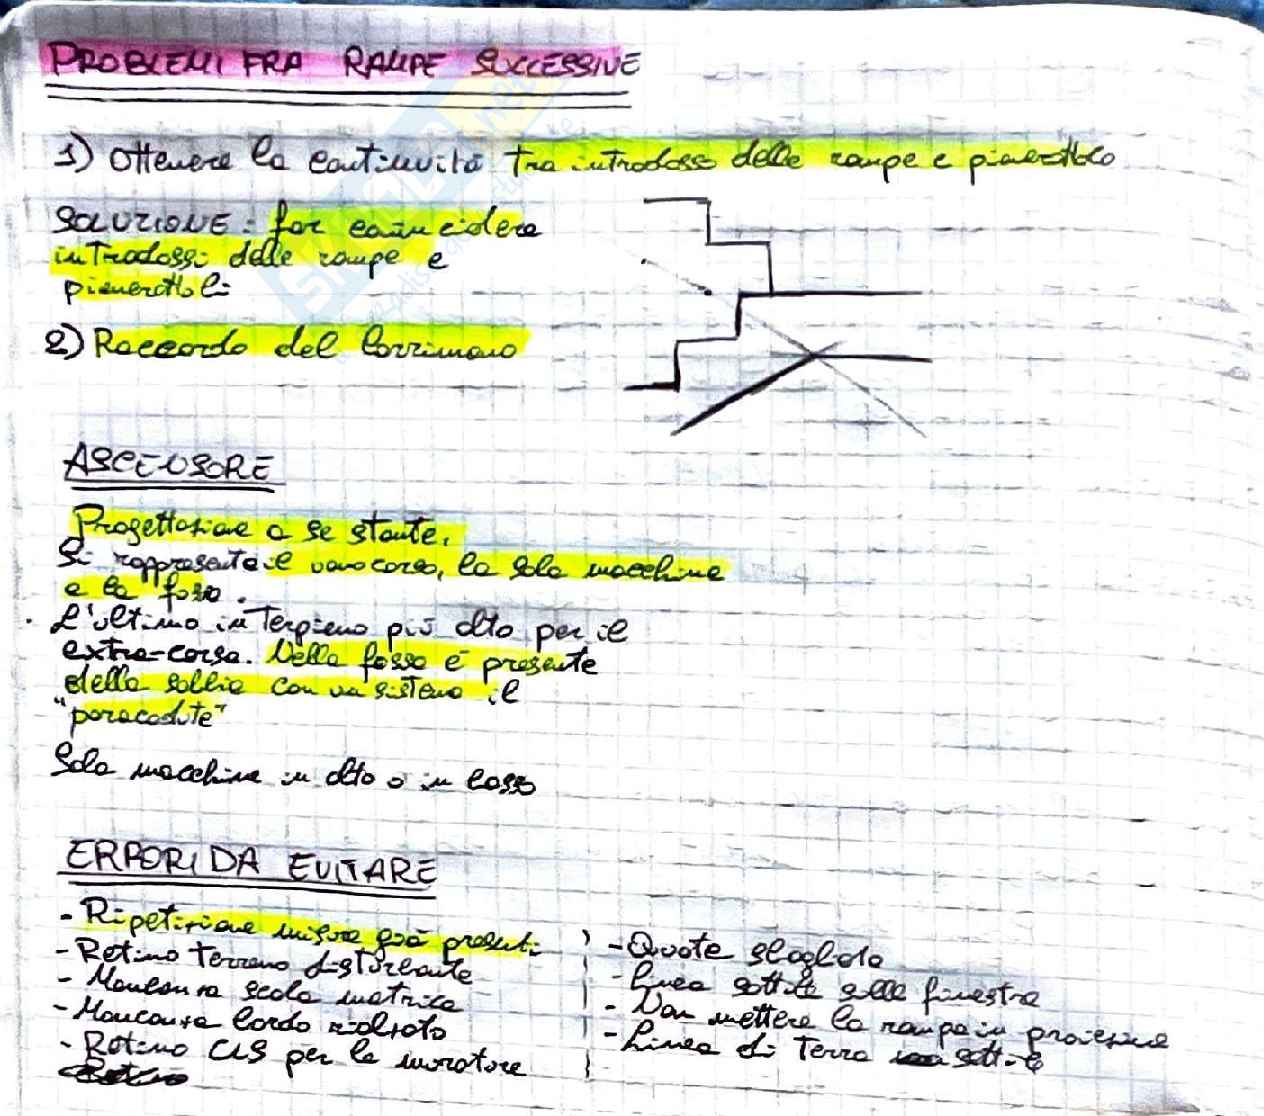 PROBLEMI FRA RAMPE SUCCESSIVE
1) Ottenere la continuità tra intradosso delle rampe e pianerottolo
SOLUZIONE: far coincidere
intradossi delle rampe e
pianerottoli
2) Raccordo del corrimano
ASCENSORE
Progettazione a se stante.
Si rappresenta il vano corsa, la sala macchine
e la fossa.
. L'ultimo interpiano più alto per il
extra-corsa. Nella fossa è presente
della sabbia con un sistema il
"paracadute"
Sala macchine in alto o in basso
ERRORI DA EVITARE
- Ripetizione misure già presenti
- Retino terreno disturbante
- Mancanza scala metrica
- Mancanza bordo rialzato
- Retino CLS per le murature
- Quote sbagliate
- Linea sottile sulle finestre
- Non mettere la rampa in proiezione
- Linea di terra sottile